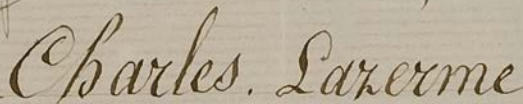 Charles. Lazerme